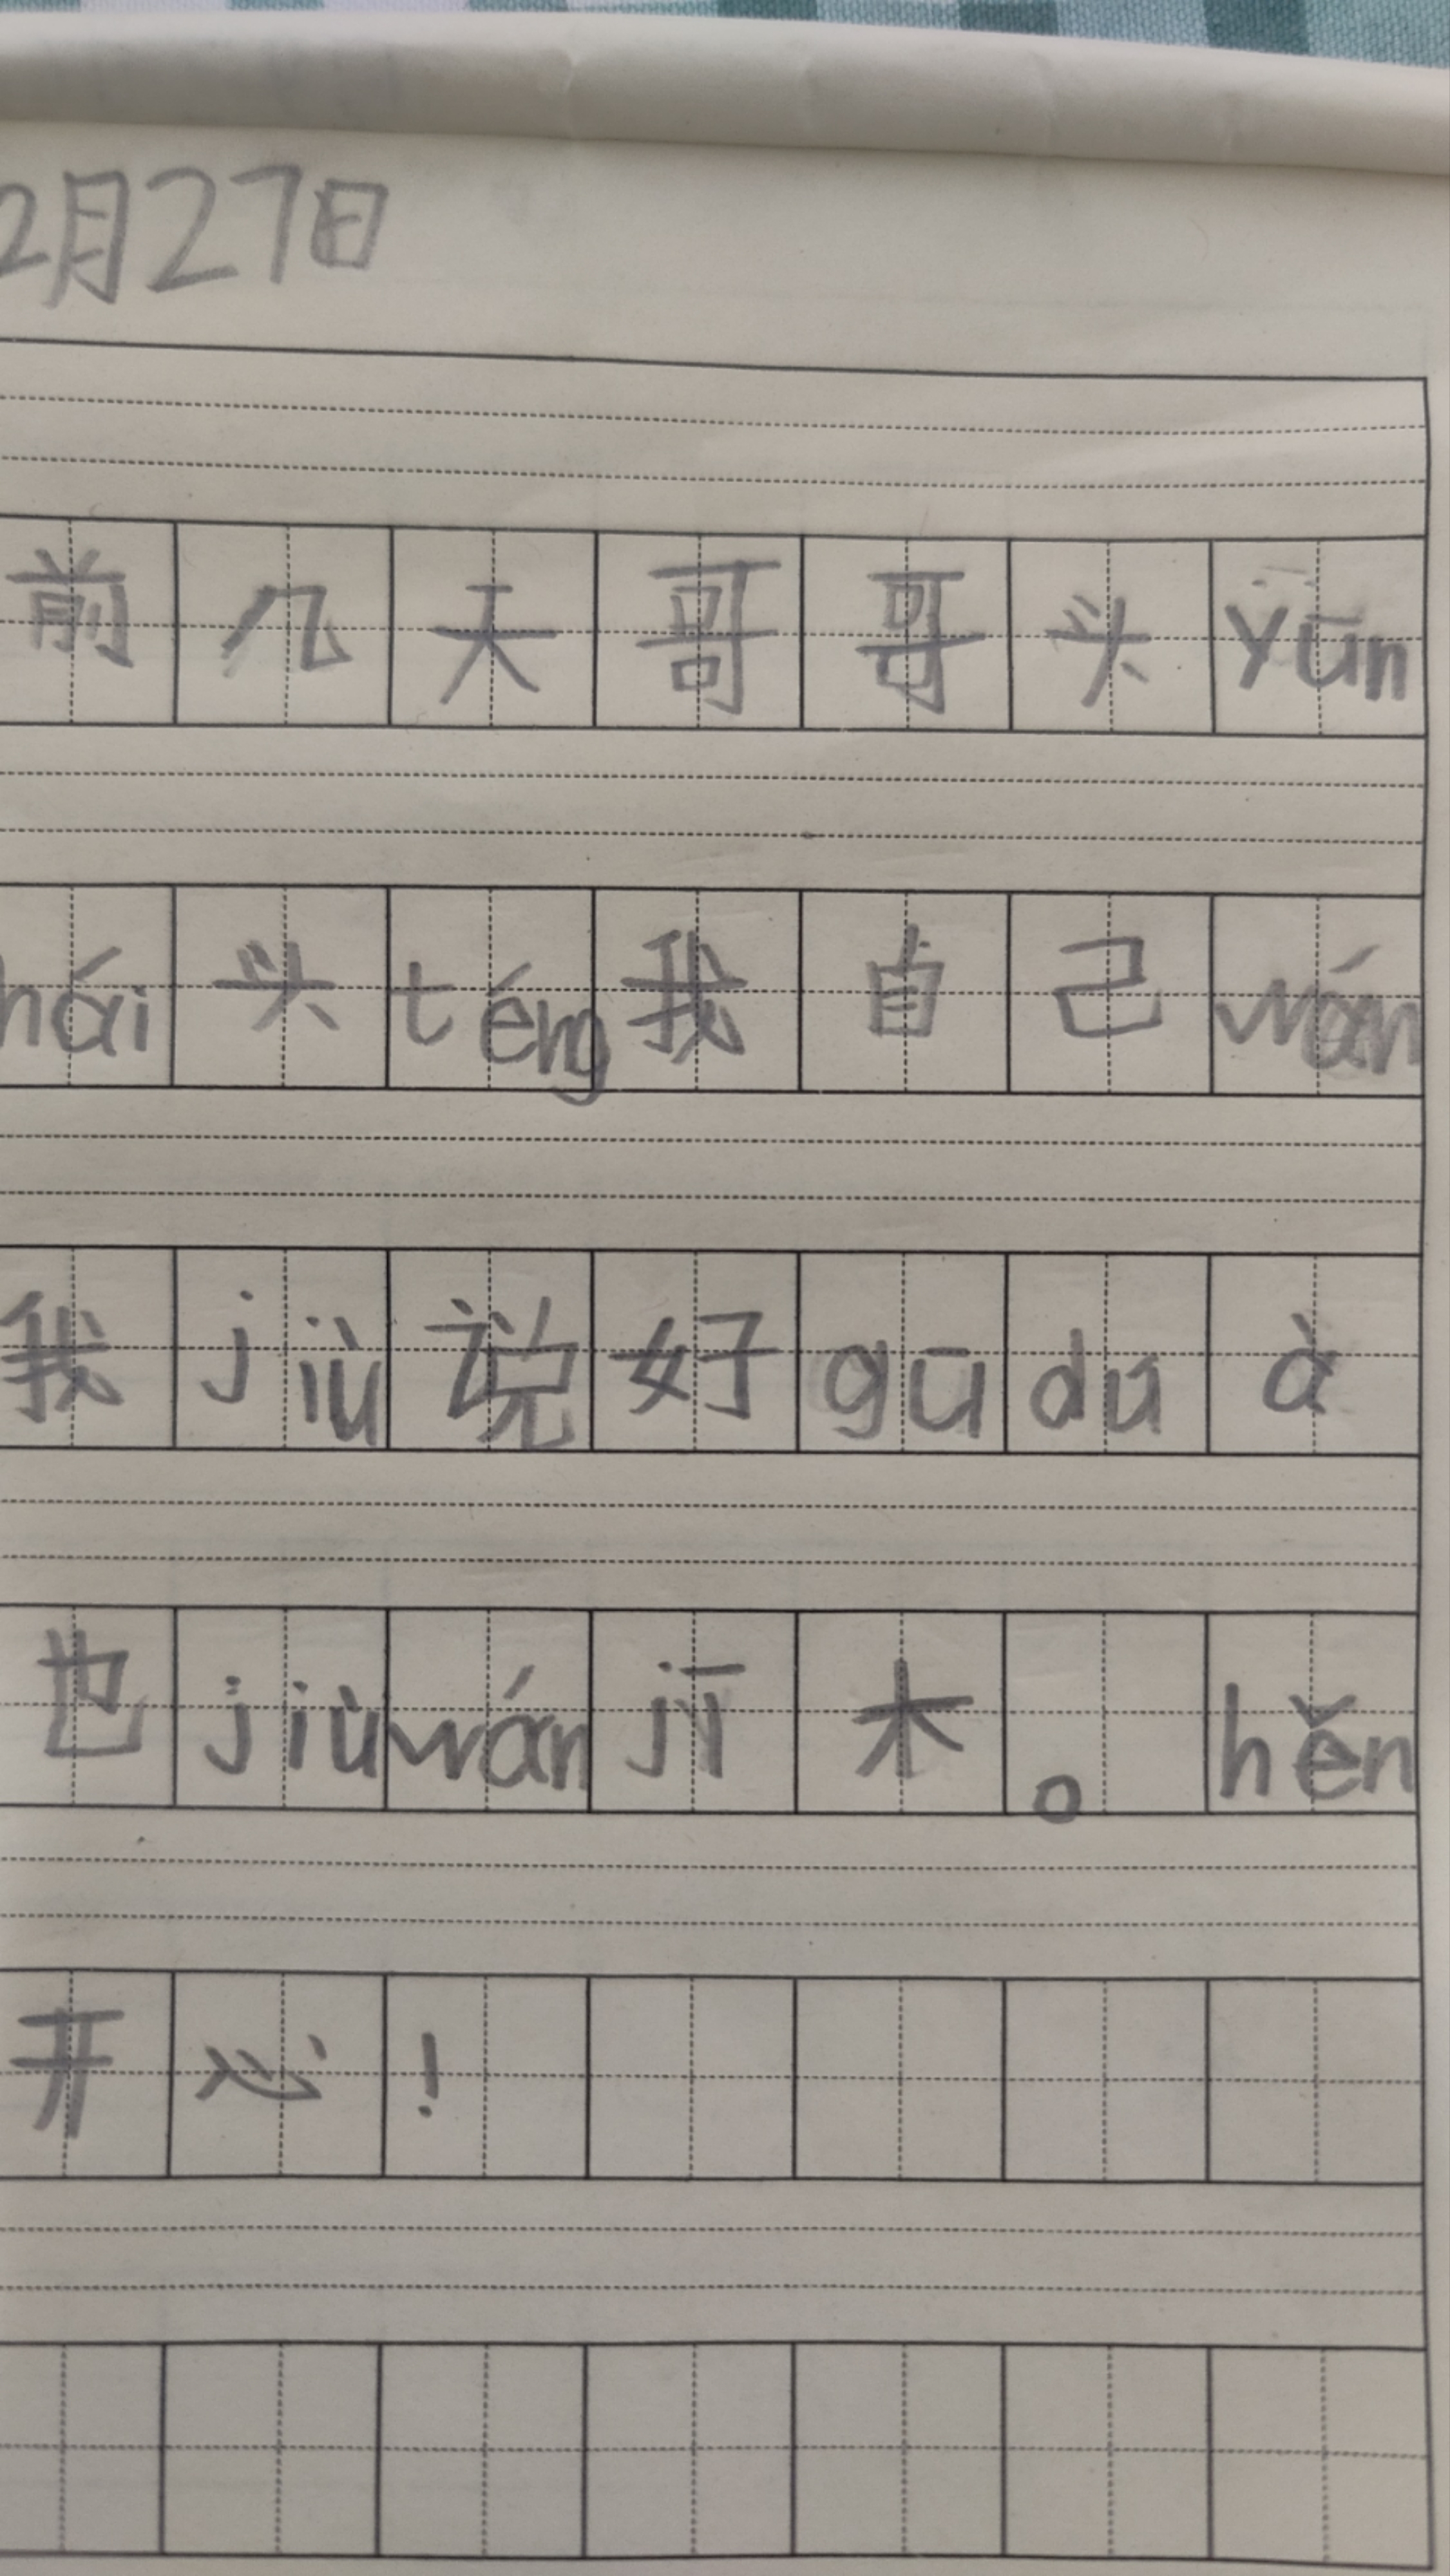 2月27日
前几天哥哥头yūn
hái头téng我自己wán
我jiù说好gū dú à
也jiùwánjī木。hěn
开心!